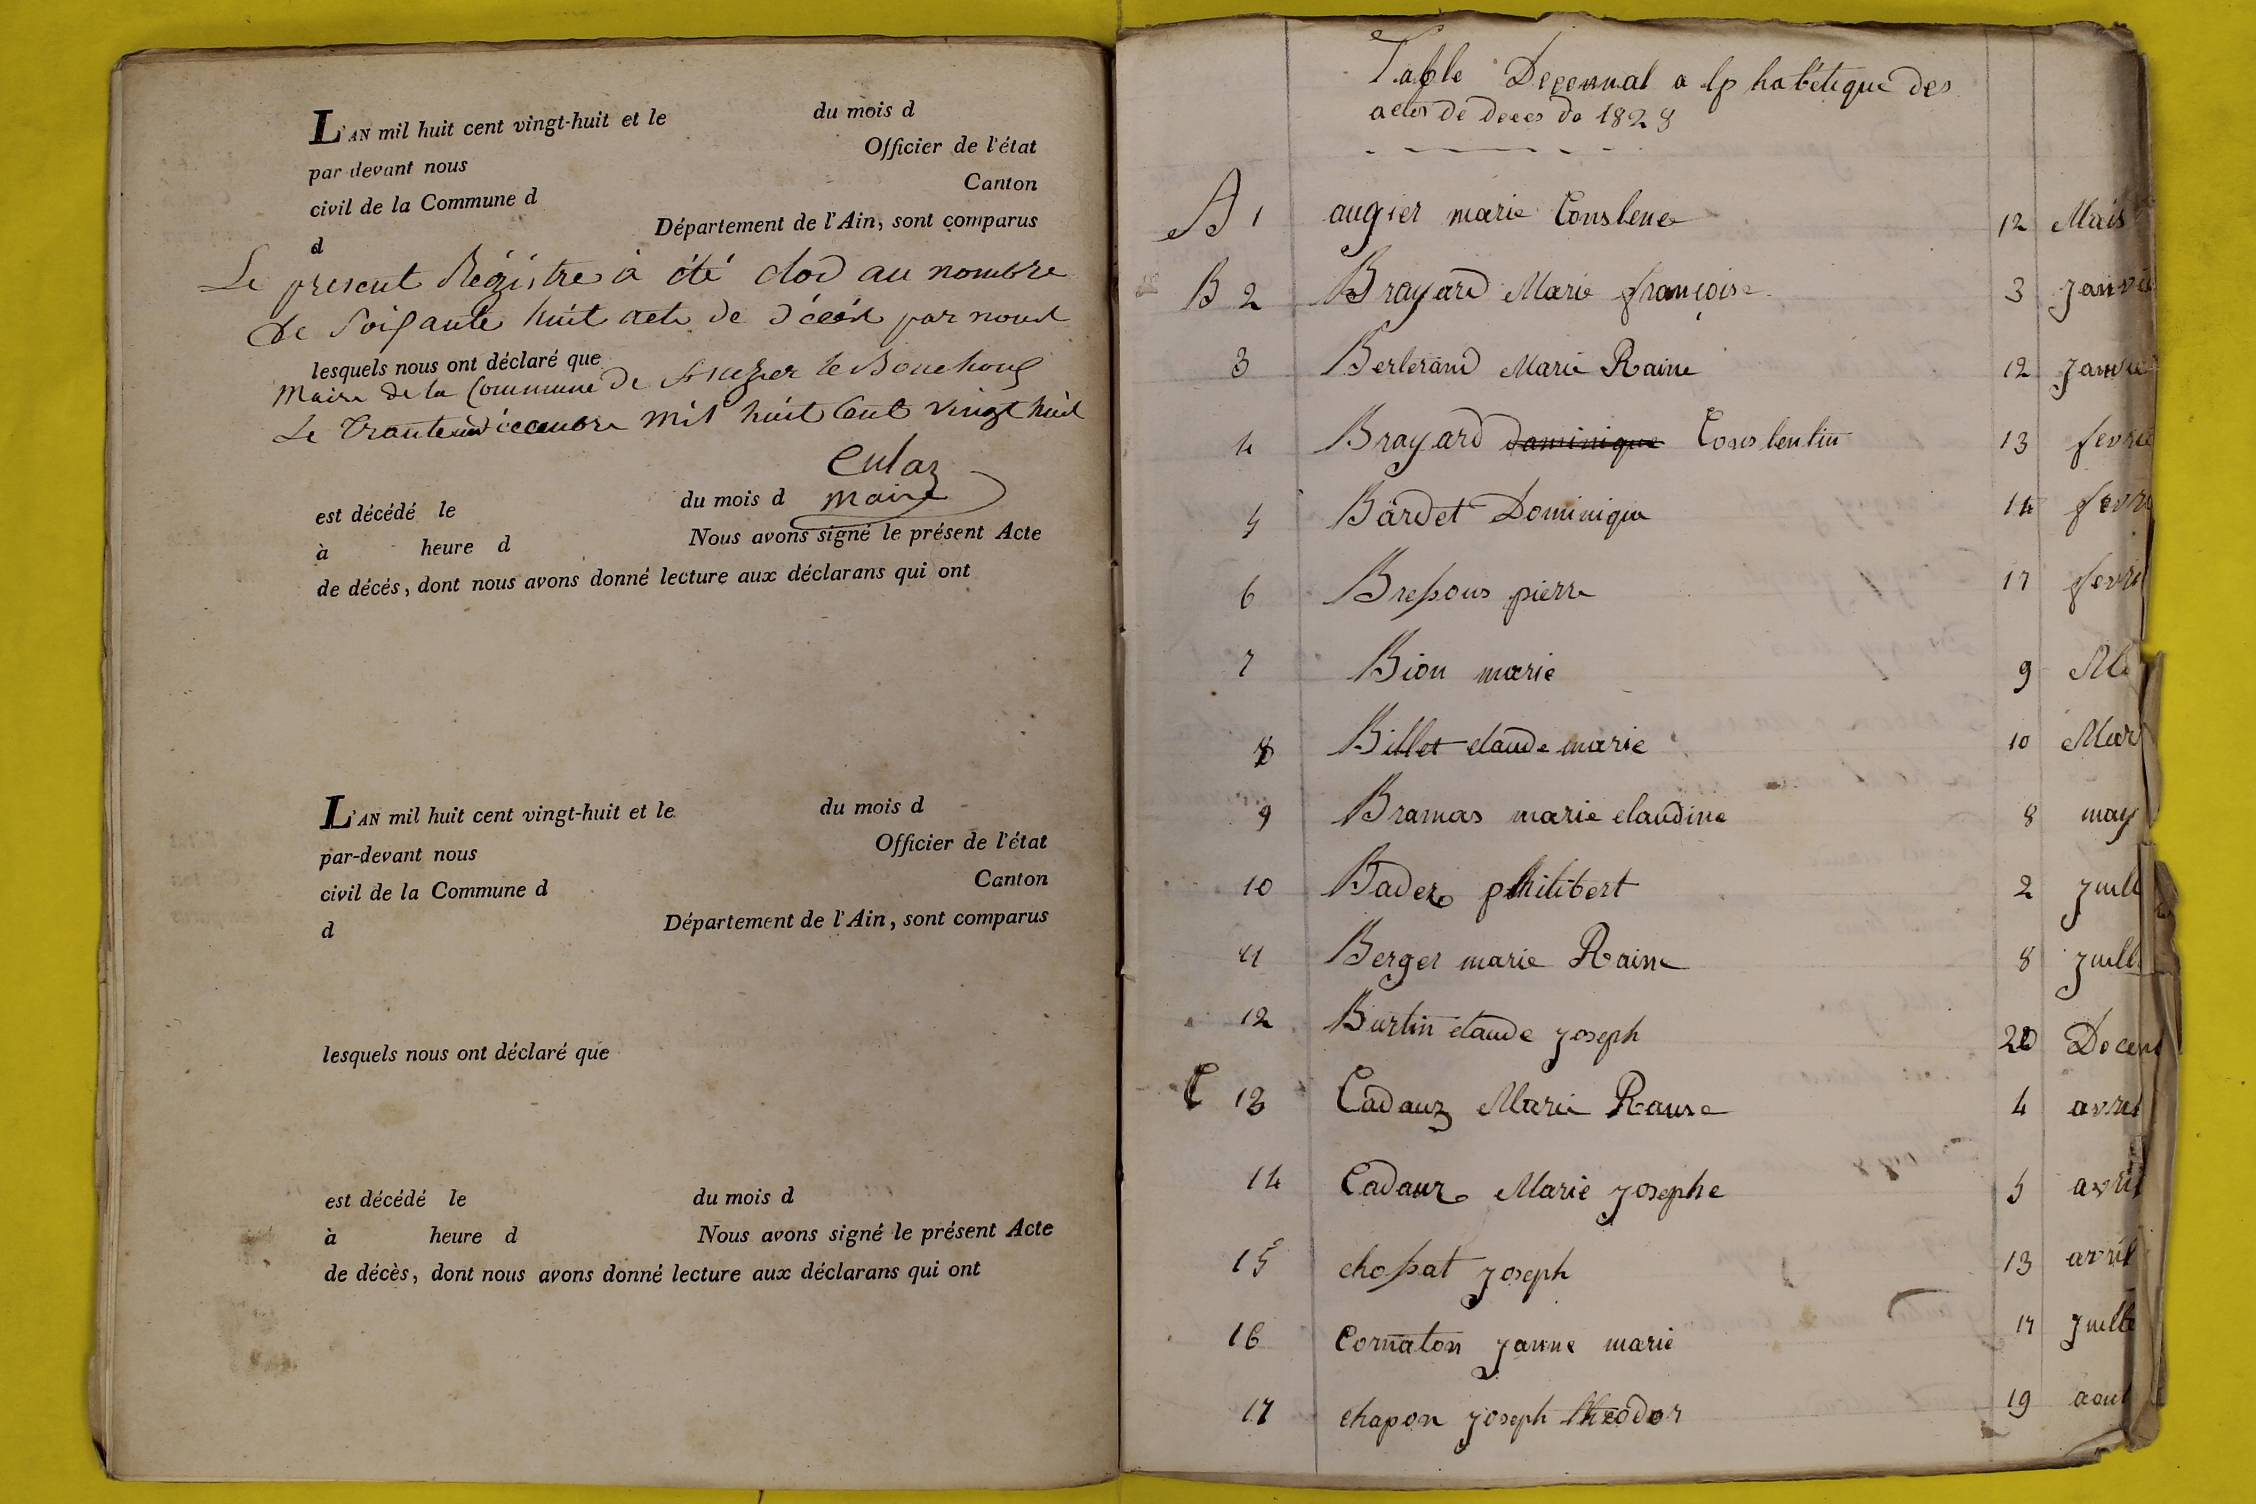 L'AN mil huit cent vingt-huit et le du mois d
par devant nous Officier de l'état
civil de la Commune d Canton
d Département de l'Ain, sont comparus
Le present Régistre à été clod au nombre
de Soissante huit acte de décéd par nous
lesquels nous ont déclaré que
Maire de la Commune de St nizier le Bouchoux
Le Trante un décembre mil huit Cent vingt huit
Culaz
est décédé le du mois d maire
à heure d Nous avons signé le présent Acte
de décés, dont nous avons donné lecture aux déclarans qui ont
L'AN mil huit cent vingt-huit et le du mois d
par-devant nous Officier de l'état
civil de la Commune d Canton
d Département de l'Ain, sont comparus
lesquels nous ont déclaré que
est décédé le du mois d
à heure d Nous avons signé le présent Acte
de décès, dont nous avons donné lecture aux déclarans qui ont
Table Decennal alphabétique des
actes de deces de 1828
A 1 augier marie Constence 12 Mais
B 2 Brayard Marie françoise 3 Janvie
3 Berlerand Marie Raine 12 Janvie
4 Brayard daminique Constentin 13 fevrie
5 Bardet Dominique 14 fevri
6 Bressous pierre 17 fevri
7 Bion marie 9
8 Billet claude marie 10 Mar
9 Bramas marie claudine 8 may
10 Badez philibert 2 Juill
11 Berger marie Raine 8 Juill
12 Burtin claude joseph 20 Decem
C 13 Cadauz Marie Rause 4 avril
14 Cadauz Marie josephe 5 avril
15 chossat joseph 13 avril
16 Cornaton janne marie 17 Juille
17 chapon joseph theodor 19 aout